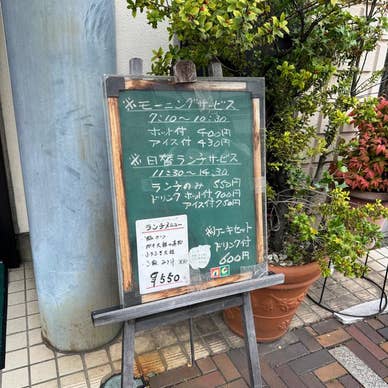 ※モーニングサービス
7:10〜10:30
ホット付 400円
アイス付 430円
※日替ランチサービス
11:30〜14:30
ランチのみ 550円
ドリンク ホット付 700円
アイス付 750円
※ケーキセット
ドリンク付
600円
ランチメニュー
¥550